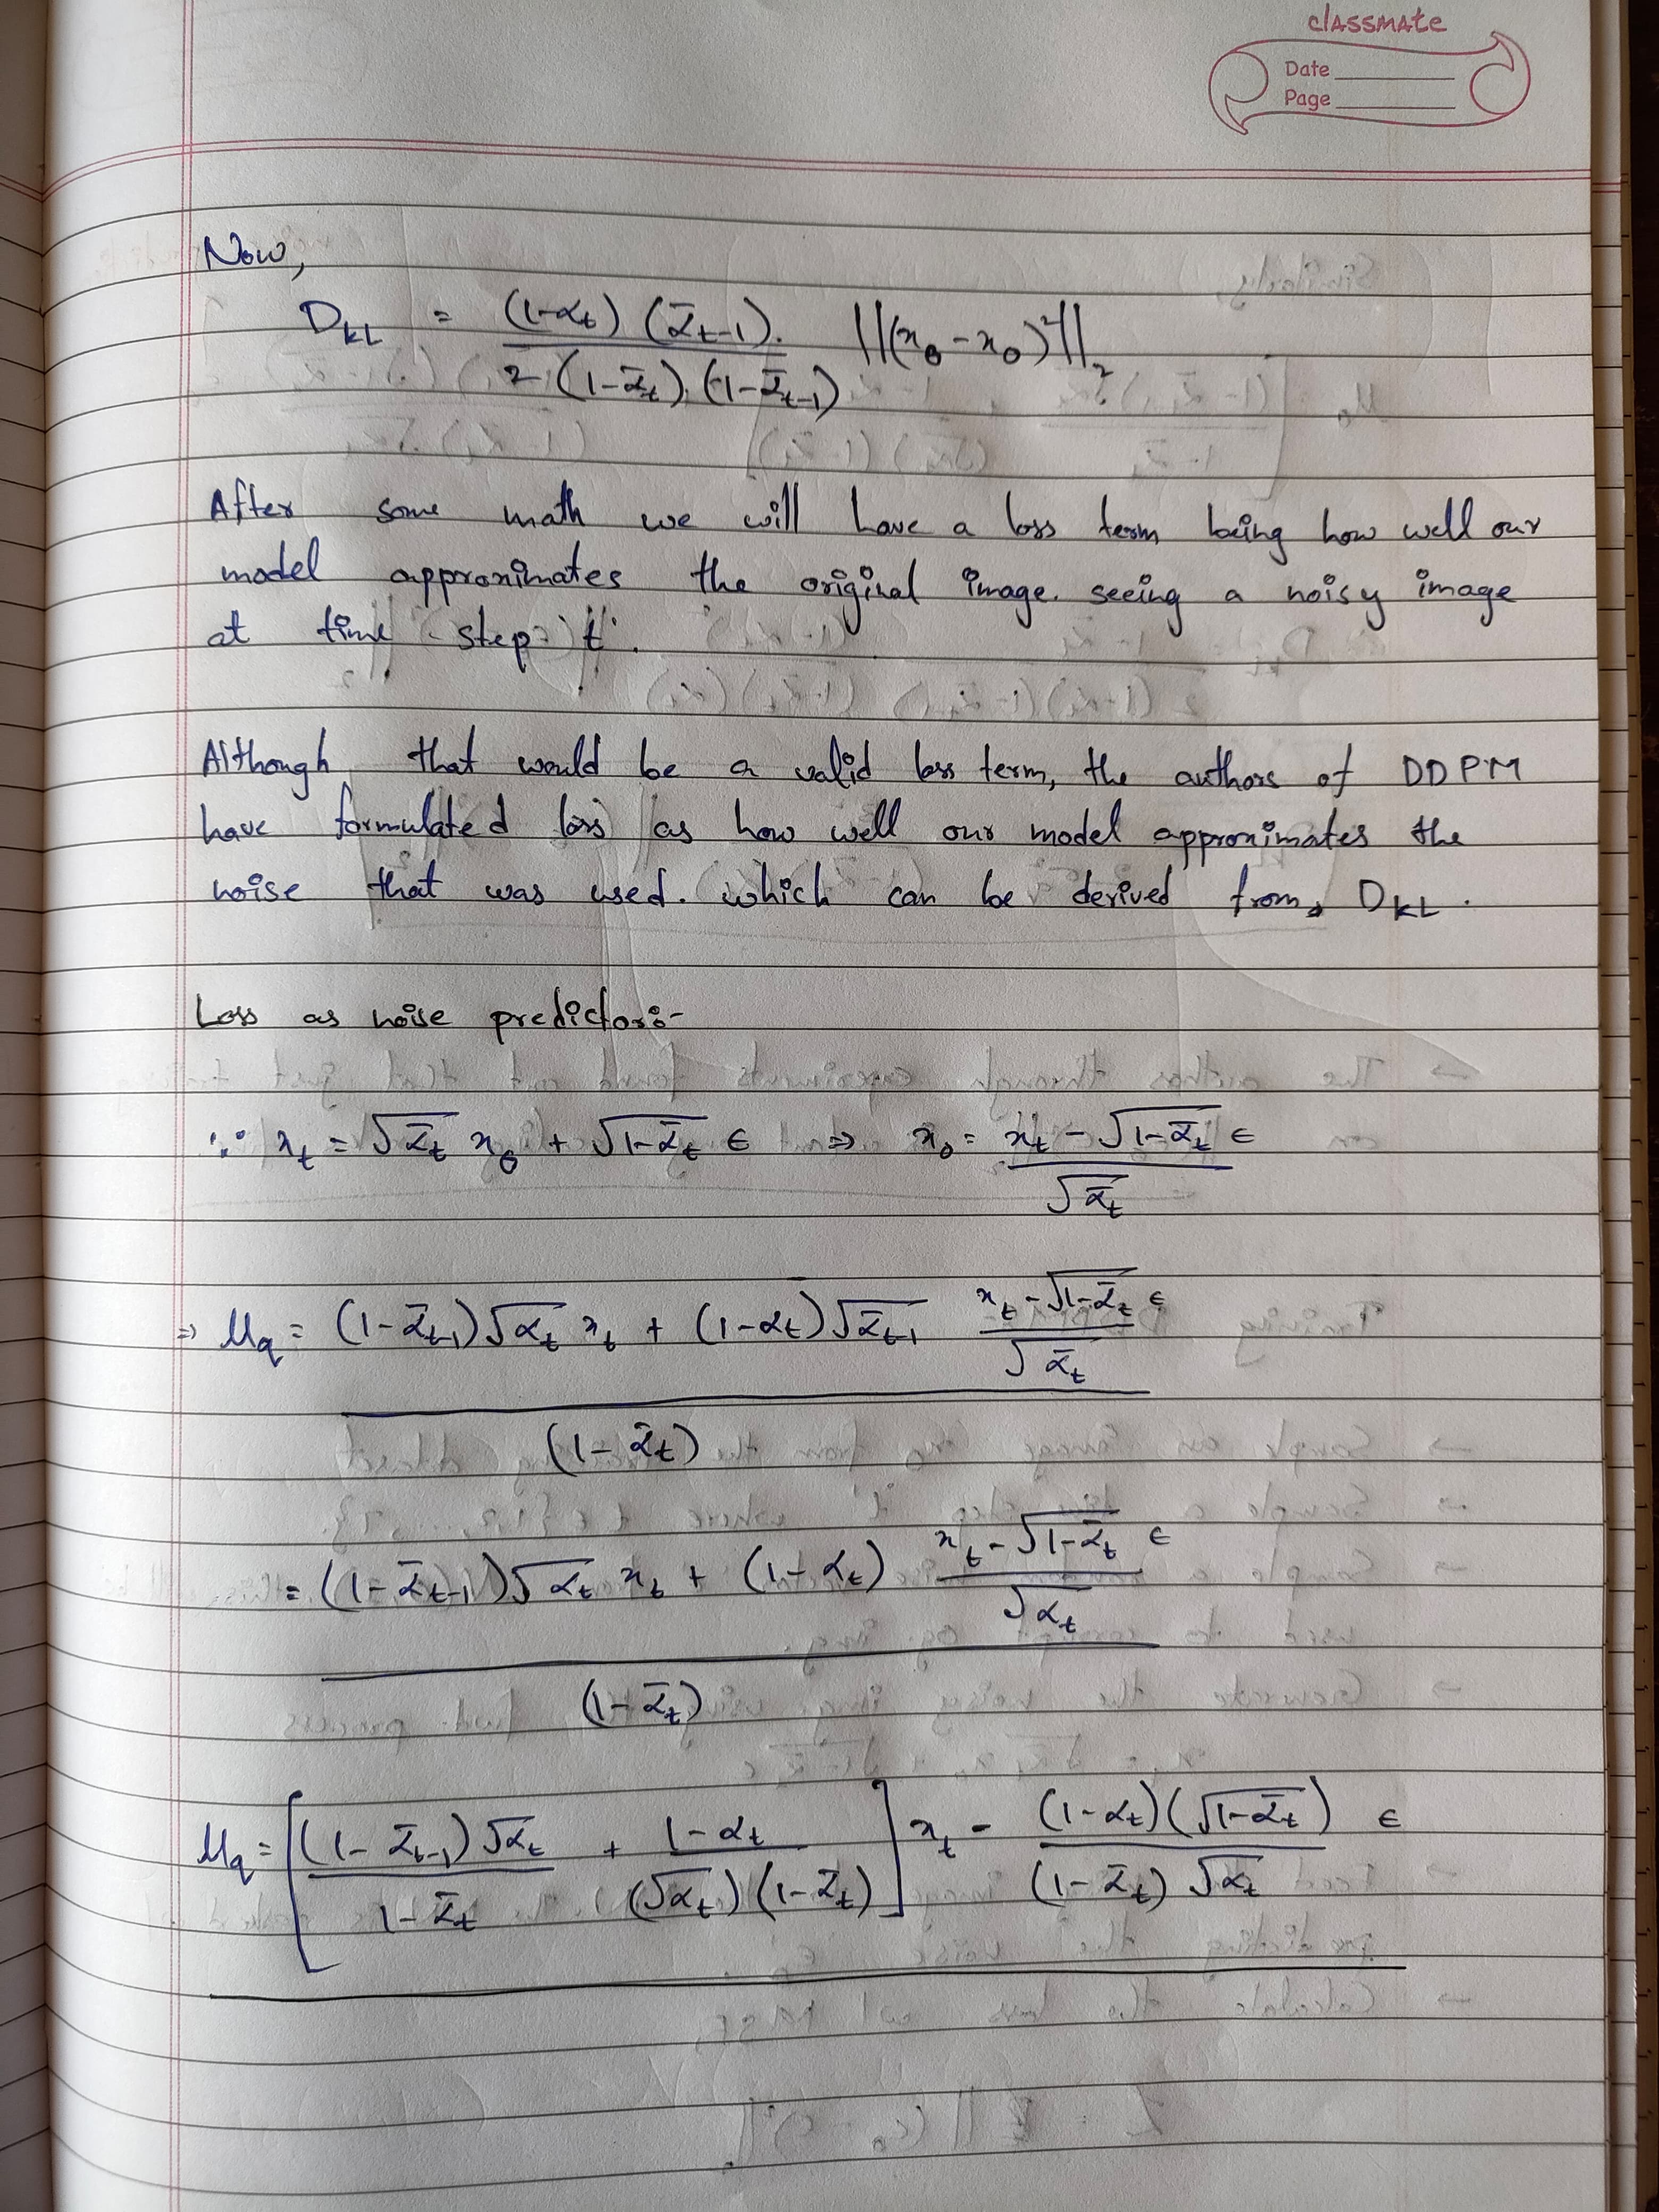 classmate
Date
Page
Now,
D_KL = (1-α_t) (ᾱ_{t-1}). / 2 (1-ᾱ_t). (1-ᾱ_{t-1}) ||(x_θ - x_0)²||_2
After some math we will have a loss term being how well our
model approximates the original image. seeing a noisy image
at time step 't'.
Although that would be a valid loss term, the authors of DDPM
have formulated loss as how well our model approximates the
noise that was used. which can be derived from, D_KL.
Loss as noise predictor:-
∵ x_t = √ᾱ_t x_0 + √(1-ᾱ_t) ε ⇒ x_0 = (x_t - √(1-ᾱ_t) ε) / √ᾱ_t
⇒ μ_q = ((1-ᾱ_{t-1})√α_t x_t + (1-α_t)√ᾱ_{t-1} (x_t - √(1-ᾱ_t) ε) / √ᾱ_t) / (1-ᾱ_t)
= ((1-ᾱ_{t-1})√α_t x_t + (1-α_t) (x_t - √(1-ᾱ_t) ε) / √α_t) / (1-ᾱ_t)
μ_q = [(1-ᾱ_{t-1})√α_t / (1-ᾱ_t) + (1-α_t) / ((√α_t)(1-ᾱ_t))] x_t - (1-α_t)(√(1-ᾱ_t)) / ((1-ᾱ_t)√α_t) ε